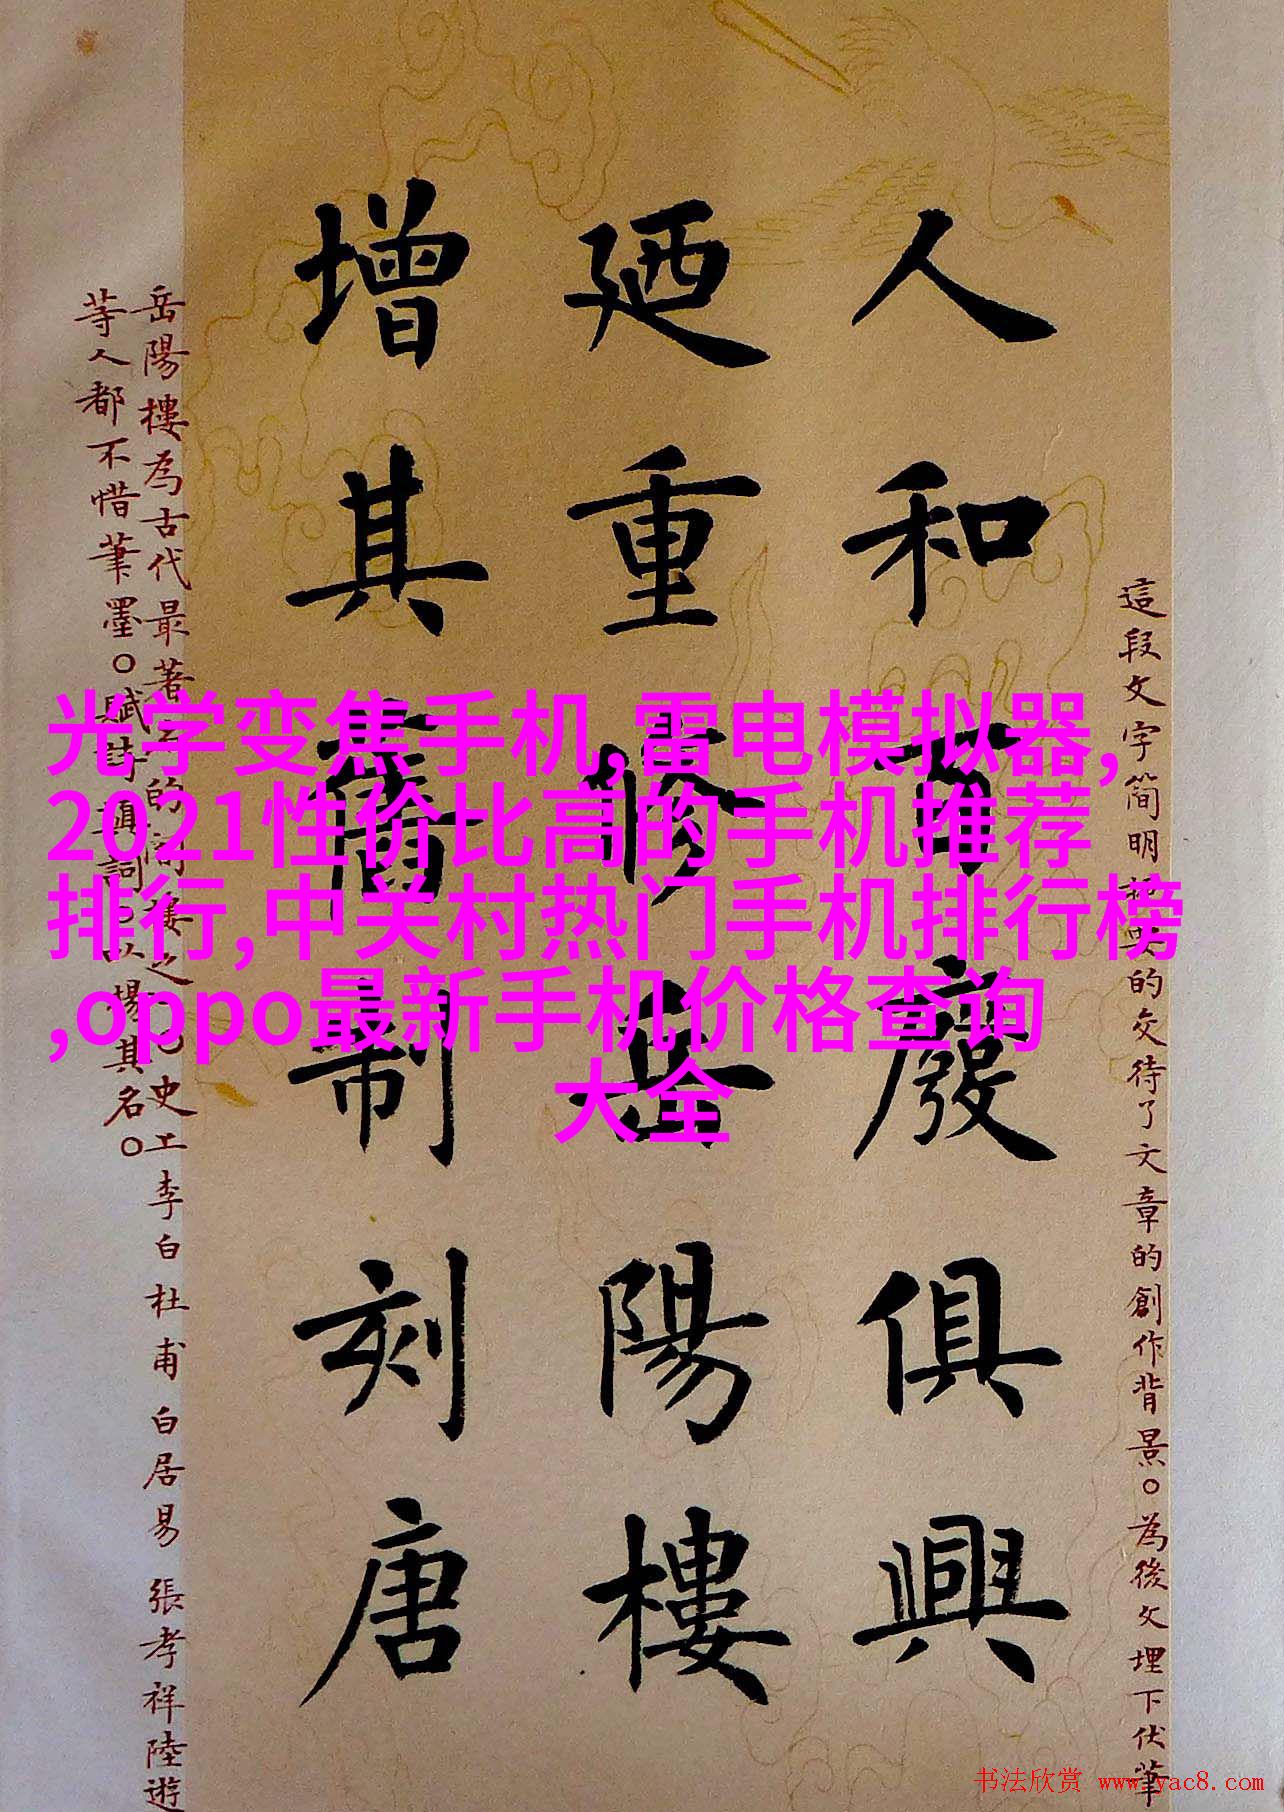 人和百廢俱興
廼重修岳陽樓
增其舊制刻唐
這段文字简明扼要的交待了文章的創作背景。為後文埋下伏筆
岳陽樓為古代最著名的
史上李白杜甫白居易張孝祥陸遊
等人都不惜筆墨。賦詩填詞
場其名。
光学变焦手机,雷电模拟器,
2021性价比高的手机推荐
排行,中关村热门手机排行榜
,oppo最新手机价格查询
大全
书法欣赏 www.yac8.com